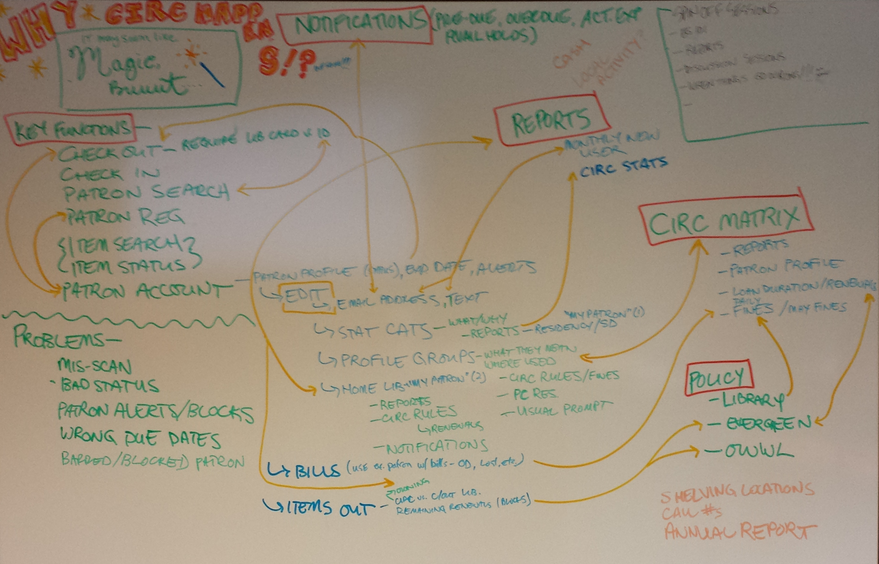 WHY CIRC
IT may seem like
Magic,
NOTIFICATIONS (PRE-DUE, OVERDUE, ACT. EXP
AVAIL HOLDS)
S!?
CASH
LOCAL
ACTIVITY?
SPIN OFF SESSIONS
- REPORTS
- DISCUSSION SESSIONS
KEY FUNCTIONS -
CHECK OUT - REQUIRE LIB CARD v. ID
CHECK IN
PATRON SEARCH
PATRON REG
{ITEM SEARCH}
{ITEM STATUS}
PATRON ACCOUNT - PATRON PROFILE, END DATE, ALERTS
EDIT
EMAIL ADDRESS, TEXT
STAT CATS - WHAT/WHY
- REPORTS - RESIDENCY/SD
"MY PATRON" (1)
PROFILE GROUPS - WHAT THEY MEAN
WHERE USED
- CIRC RULES/FINES
- PC RES
- USUAL PROMPT
HOME LIB - "MY PATRON" (2)
- REPORTS
- CIRC RULES
RENEWALS
- NOTIFICATIONS
BILLS (USE ex. patron w/ bills - OD, Lost, etc.)
ITEMS OUT -
CIRC vs. C/OUT LIB.
REMAINING RENEWALS
REPORTS
MONTHLY NEW
USER
CIRC STATS
CIRC MATRIX
- REPORTS
- PATRON PROFILE
- LOAN DURATION/RENEWALS
DAILY
- FINES/MAX FINES
POLICY
- LIBRARY
- EVERGREEN
- OWWL
SHELVING LOCATIONS
CALL #s
ANNUAL REPORT
PROBLEMS -
MIS-SCAN
- BAD STATUS
PATRON ALERTS/BLOCKS
WRONG DUE DATES
BARRED/BLOCKED PATRON